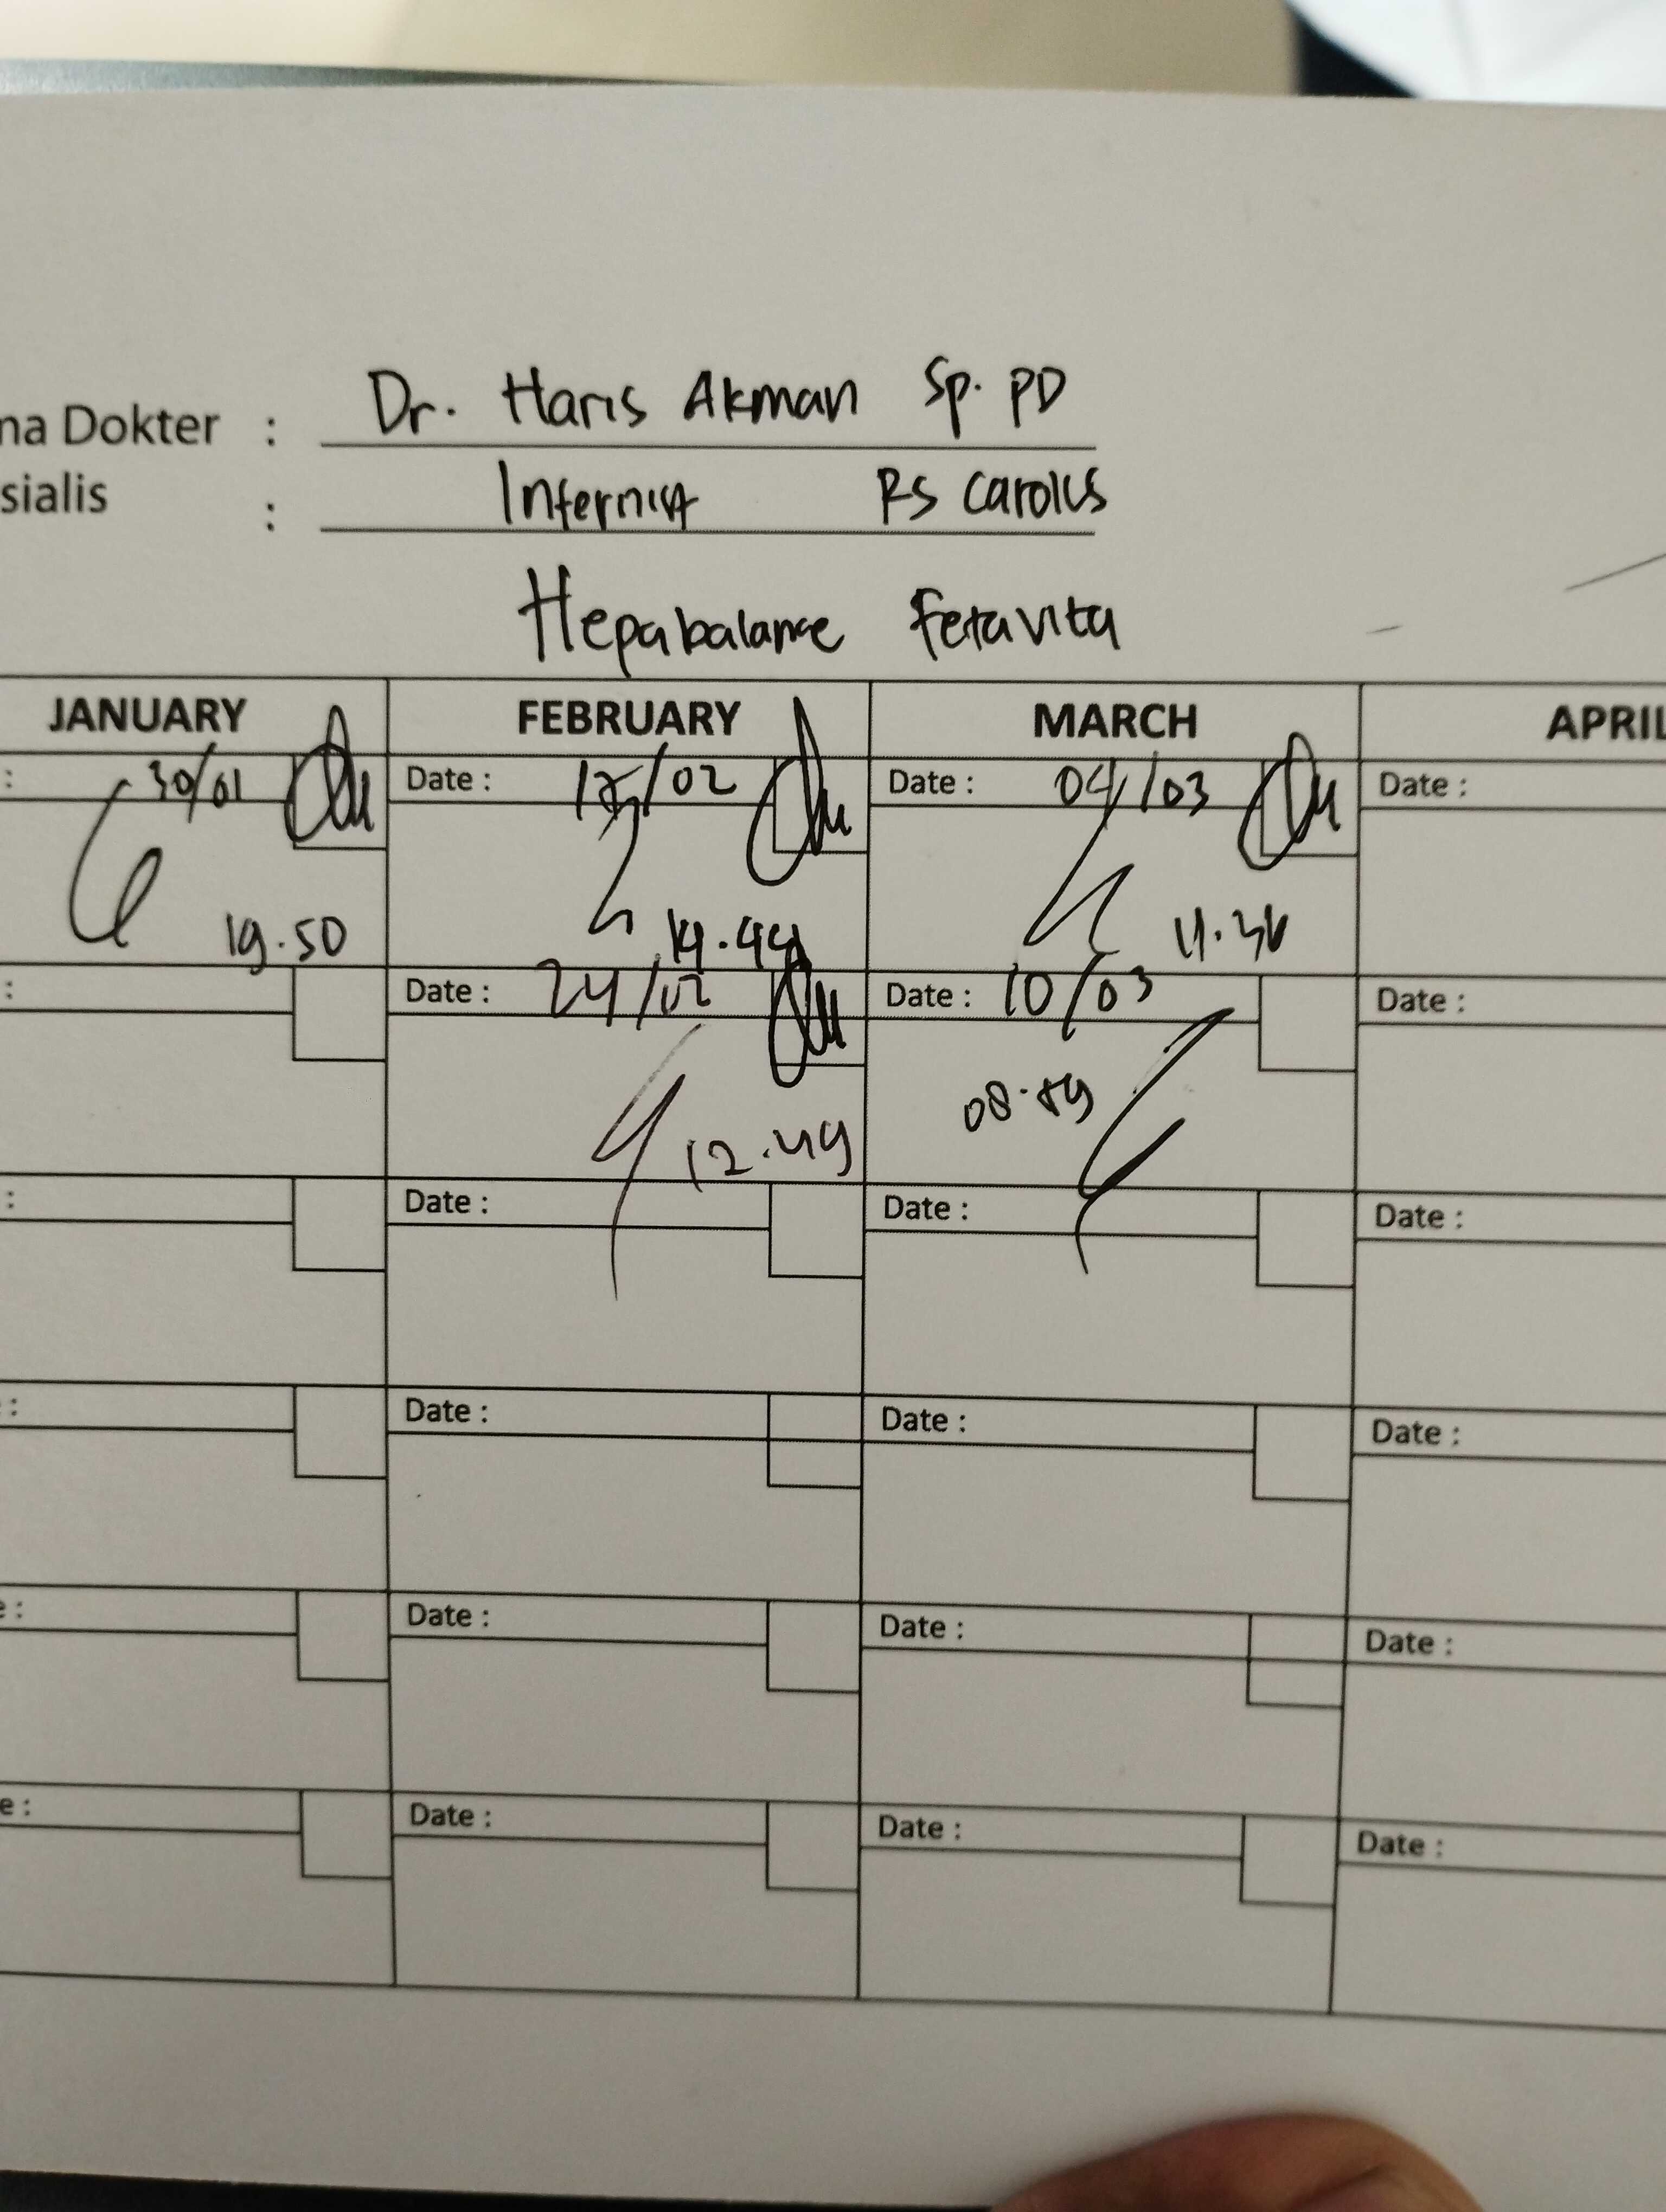 na Dokter : Dr. Haris Akman Sp. PD
sialis : Internist RS Carolus
Hepabalance Feravita
JANUARY FEBRUARY MARCH APRIL
: 30/01 Date : /02 Date : 04/03 Date :
19.50 14.44 11.36
: Date : 24/02 Date : 10/03 Date :
12.49 08.59
: Date : Date : Date :
: Date : Date : Date :
e : Date : Date : Date :
e : Date : Date : Date :